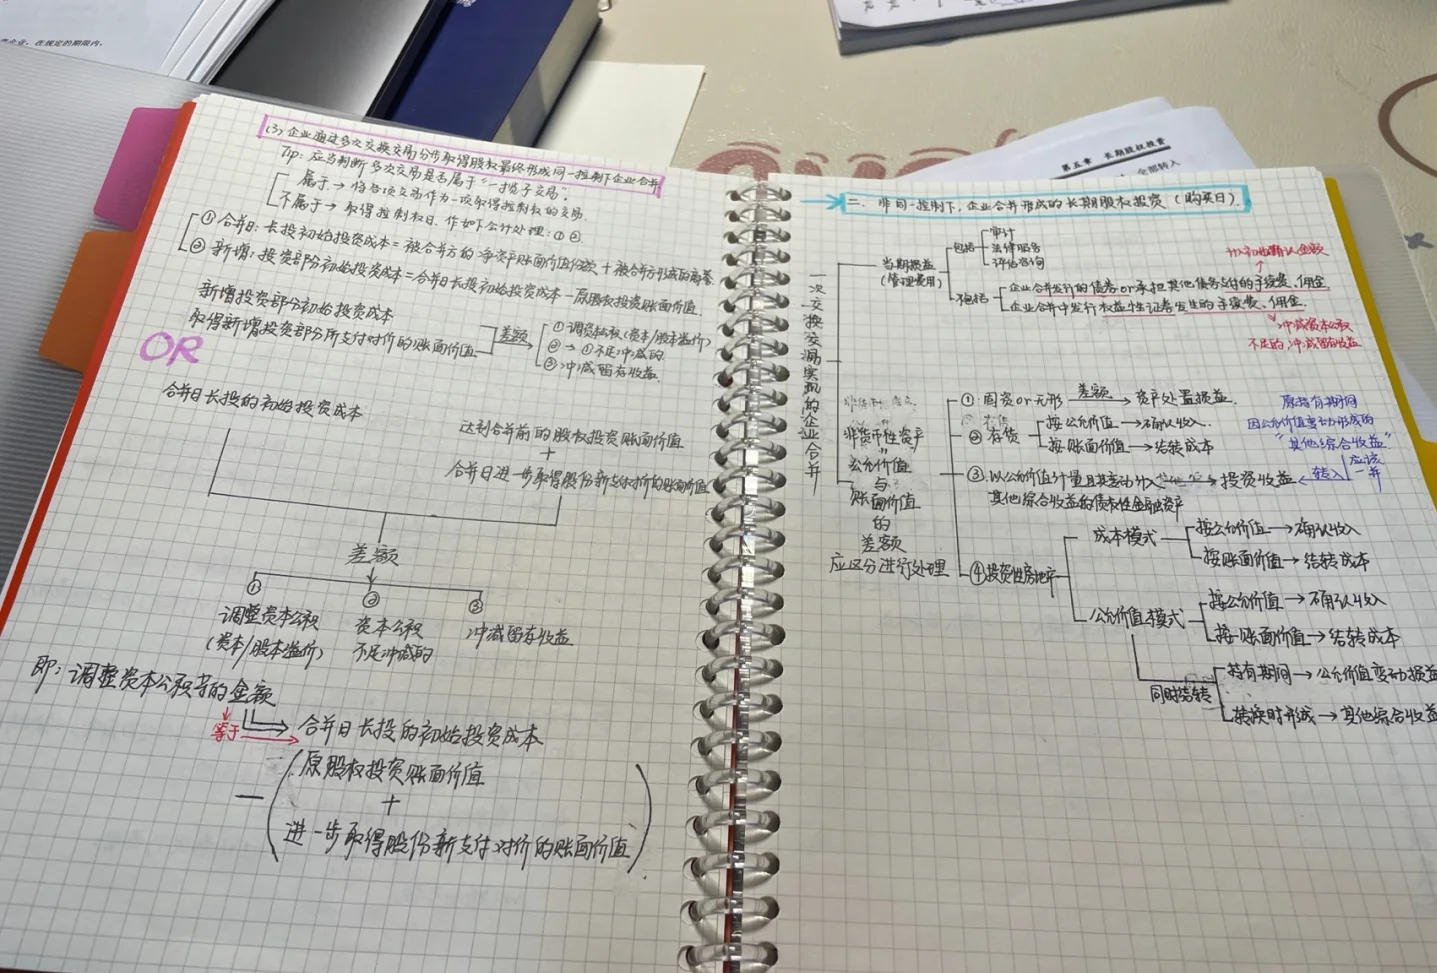 (3) 企业通过多次交换交易分步取得股权最终形成同一控制下企业合并
Tip: 应当判断多次交易是否属于"一揽子交易".
属于 → 将各项交易作为一项取得控制权的交易.
不属于 → 取得控制权日, 作如下会计处理: ① ②.
① 合并日: 长投初始投资成本 = 被合并方的净资产账面价值份额 + 被合并方形成的商誉
② 新增: 投资部份初始投资成本 = 合并日长投初始投资成本 - 原股权投资账面价值.
新增投资部分初始投资成本
取得新增投资部分所支付对价的账面价值
差额
① 调资本公积 (资本/股本溢价)
② → ①不足冲减的
③ 冲减留存收益
OR
合并日长投的初始投资成本
达到合并前的股权投资账面价值
+
合并日进一步取得股份新支付对价的账面价值
差额
① ② ③
调整资本公积
(资本/股本溢价)
资本公积
不足冲减的
冲减留存收益
即: 调整资本公积等的金额
等于
合并日长投的初始投资成本
— (原股权投资账面价值
+
进一步取得股份新支付对价的账面价值)
企业, 在规定的期限内,
第五章 长期股权投资
全部转入
二. 非同一控制下, 企业合并形成的长期股权投资 (购买日).
一次交换交易实现的企业合并
当期损益
(管理费用)
包括
审计
法律服务
评估咨询
不包括
企业合并发行的债券or承担其他债务支付的手续费、佣金
企业合并中发行权益性证券发生的手续费、佣金.
计入初始确认金额
冲减资本公积
不足的, 冲减留存收益
非货币性资产
公允价值
与
账面价值
的
差额
应区分进行处理
① 固资or无形 差额 → 资产处置损益.
② 存货
按公允价值 → 确认收入.
按账面价值 → 结转成本
③ 以公允价值计量且其变动计入
其他综合收益的债权性金融资产
→ 投资收益
转入
原持有期间
因公允价值变动形成的
"其他综合收益"
应该
一并
④ 投资性房地产
成本模式
按公允价值 → 确认收入
按账面价值 → 结转成本
公允价值模式
按公允价值 → 确认收入
按账面价值 → 结转成本
同时结转
持有期间 → 公允价值变动损益
转换时形成 → 其他综合收益